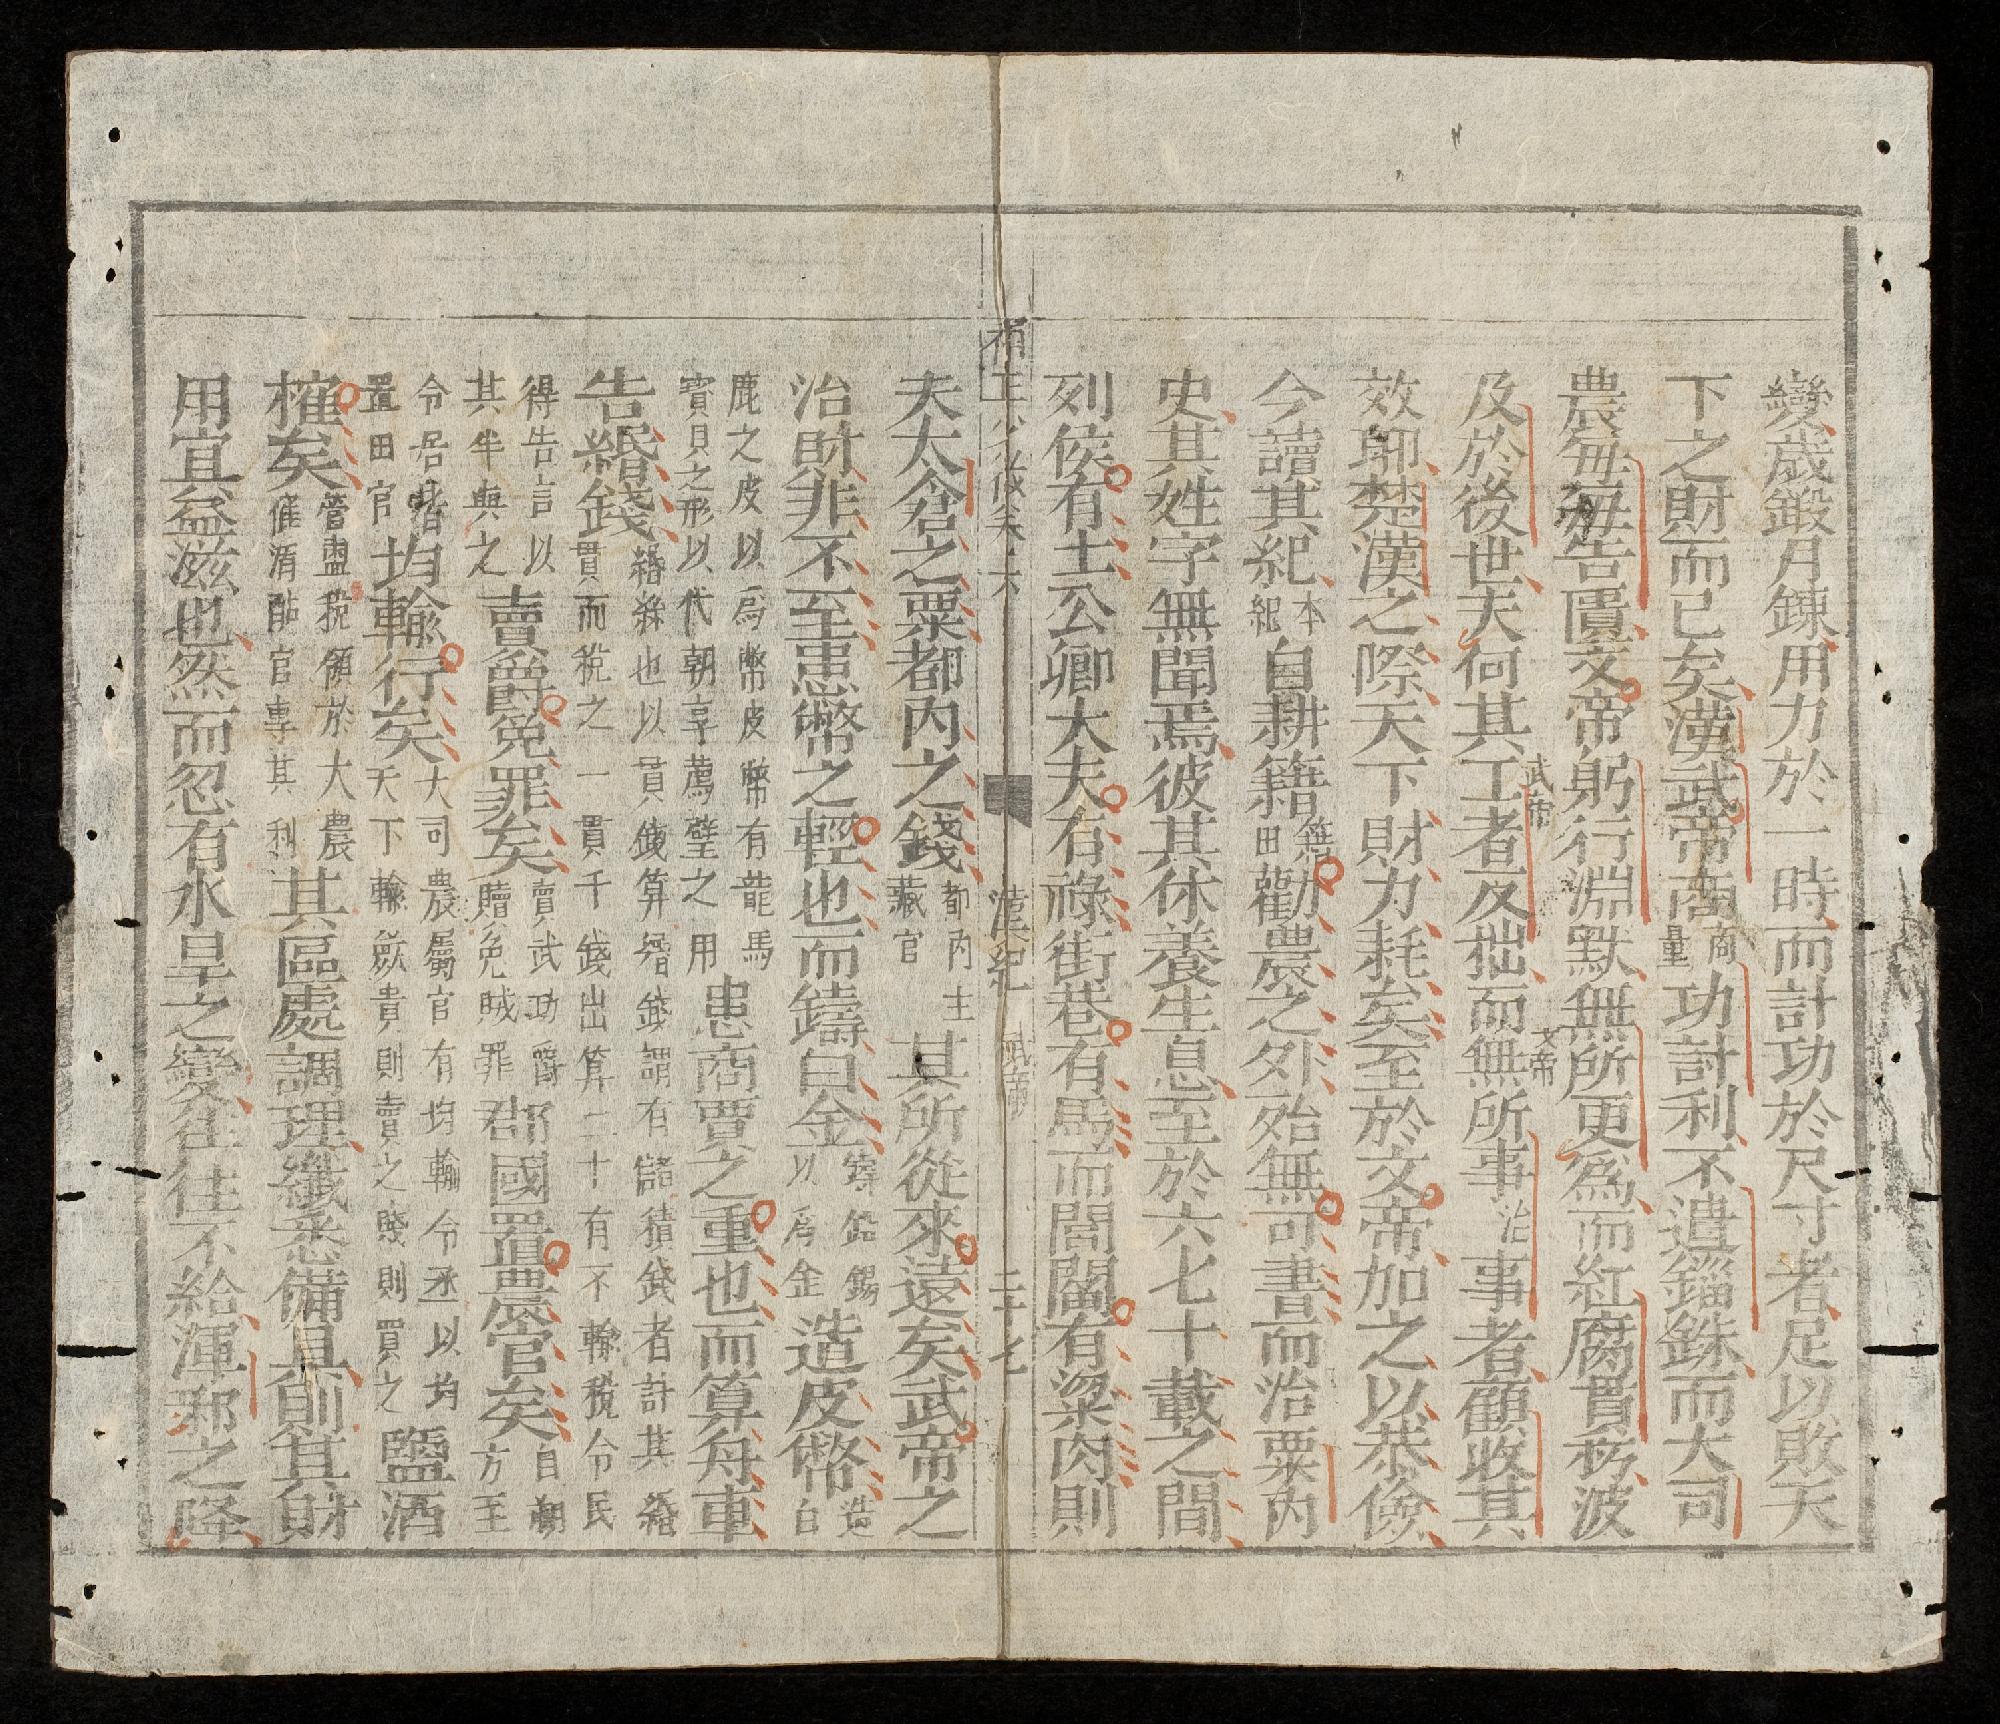 變歲鍛月鍊用力於一時而計功於尺寸者足以敗天
下之財而已矣漢武帝商商量功計利不遺錙銖而大司
農每每告匱文帝躬行淵默無所更為而紅腐貫朽波
及於後世夫何其工武帝者反拙而無文帝所事治事者顧收其
效耶楚漢之際天下財力耗矣至於文帝加之以恭儉
今讀其紀本紀自耕籍籍田勸農之外殆無可書而治粟內
史其姓字無聞焉彼其休養生息至於六七十載之間
列侯有土公卿大夫有祿街巷有馬而閻閻有粱肉則
漢紀 武帝 二十七
夫大倉之粟都內之錢都內主藏官其所從來遠矣武帝之
治財非不至患幣之輕也而鑄白金鑄鉛錫以為金造皮幣造白
鹿之皮以爲幣皮幣有龍馬寶貝之形以代朝享薦璧之用患商賈之重也而算舟車
告緡錢緡絲也以貫錢算緡錢謂有儲積錢者計其緡貫而稅之一貫千錢出算二十有不輸稅令民
得告言以其半與之賣爵免罪矣賣武功爵贖免賊罪郡國置農官矣自朝方至
令居皆置田官均輸行矣大司農屬官有均輸令丞以均天下輸斂貴則賣之賤則買之鹽酒
榷矣管盬稅領於大農榷酒酤官專其利其區處調理纖悉備具則其財
用宜益滋也然而忽有水旱之變往往不給渾邪之降